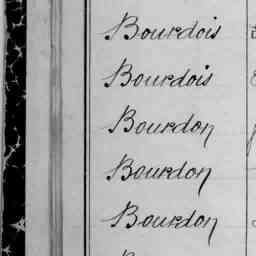 Bourdois
Bourdois
Bourdon
Bourdon
Bourdon